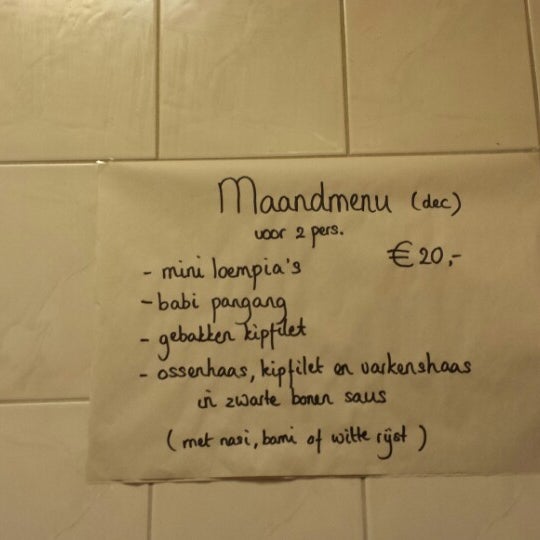 Maandmenu (dec)
voor 2 pers.
€ 20,-
- mini loempia's
- babi pangang
- gebakken kipfilet
- ossenhaas, kipfilet en varkenshaas
in zwarte bonen saus
(met nasi, bami of witte rijst)